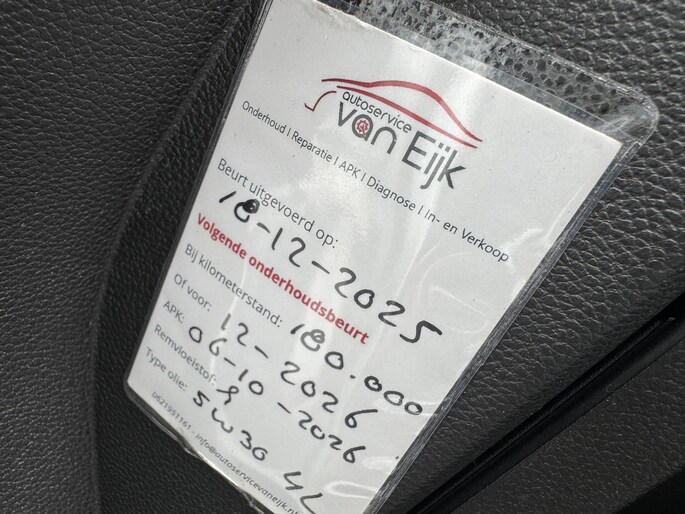 autoservice
van Eijk
Onderhoud | Reparatie | APK | Diagnose | In- en Verkoop
Beurt uitgevoerd op:
18-12-2025
Volgende onderhoudsbeurt
Bij kilometerstand: 180.000
Of voor: 12-2026
APK: 06-10-2026
Remvloeistof:
Type olie: 5W30 4L
0621951161 - info@autoservicevaneijk.nl